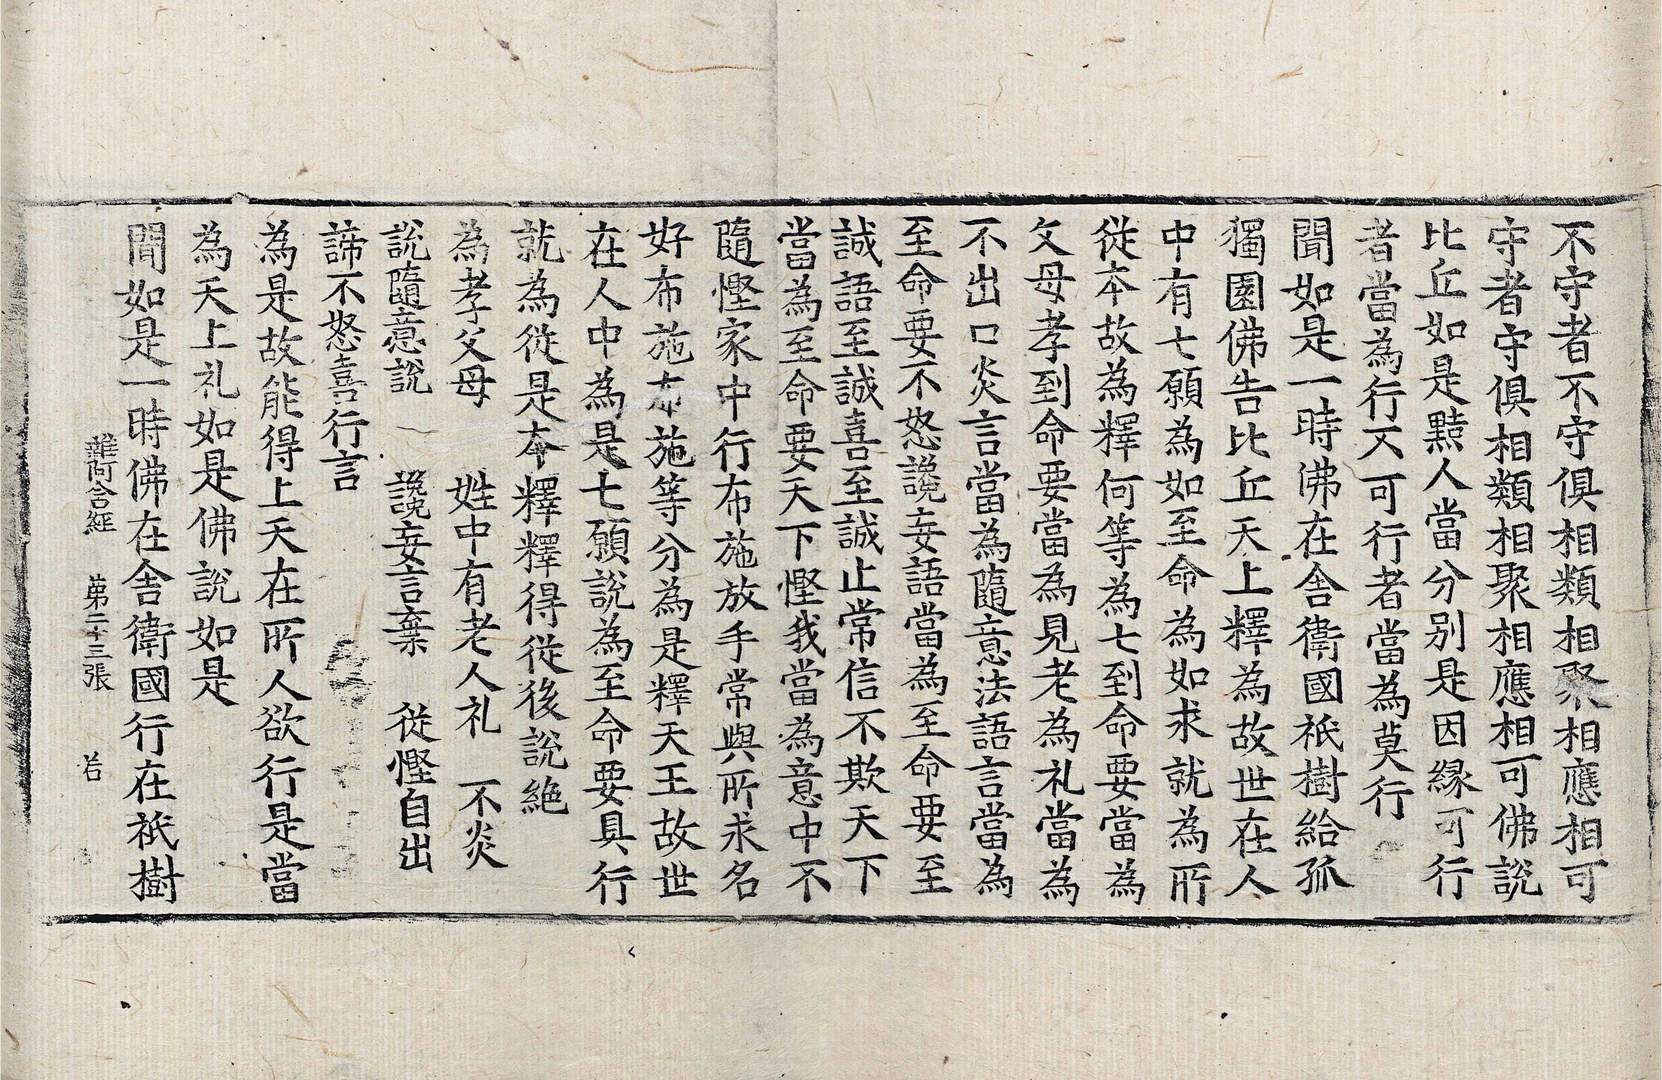 不守者不守俱相類相聚相應相可
守者守俱相類相聚相應相可佛說
比丘如是黠人當分別是因緣可行
者當為行不可行者當為莫行
聞如是一時佛在舍衛國祇樹給孤
獨園佛告比丘天上釋為故世在人
中有七願為如至命為如求就為所
從本故為釋何等為七到命要當為
父母孝到命要當為見老為礼當為
不出口炎言當為隨意法語言當為
至命要不怒讒妄語當為至命要至
誠語至誠喜至誠止常信不欺天下
當為至命要天下慳我當為意中不
隨慳家中行布施放手常與所求名
好布施布施等分為是釋天王故世
在人中為是七願說為至命要具行
就為從是本釋釋得從後說絶
為孝父母 姓中有老人礼 不炎
說隨意說 讒妄言棄 從慳自出
諦不怒喜行言
為是故能得上天在所人欲行是當
為天上礼如是佛說如是
聞如是一時佛在舍衛國行在祇樹
雜阿含經 第二十三張 若